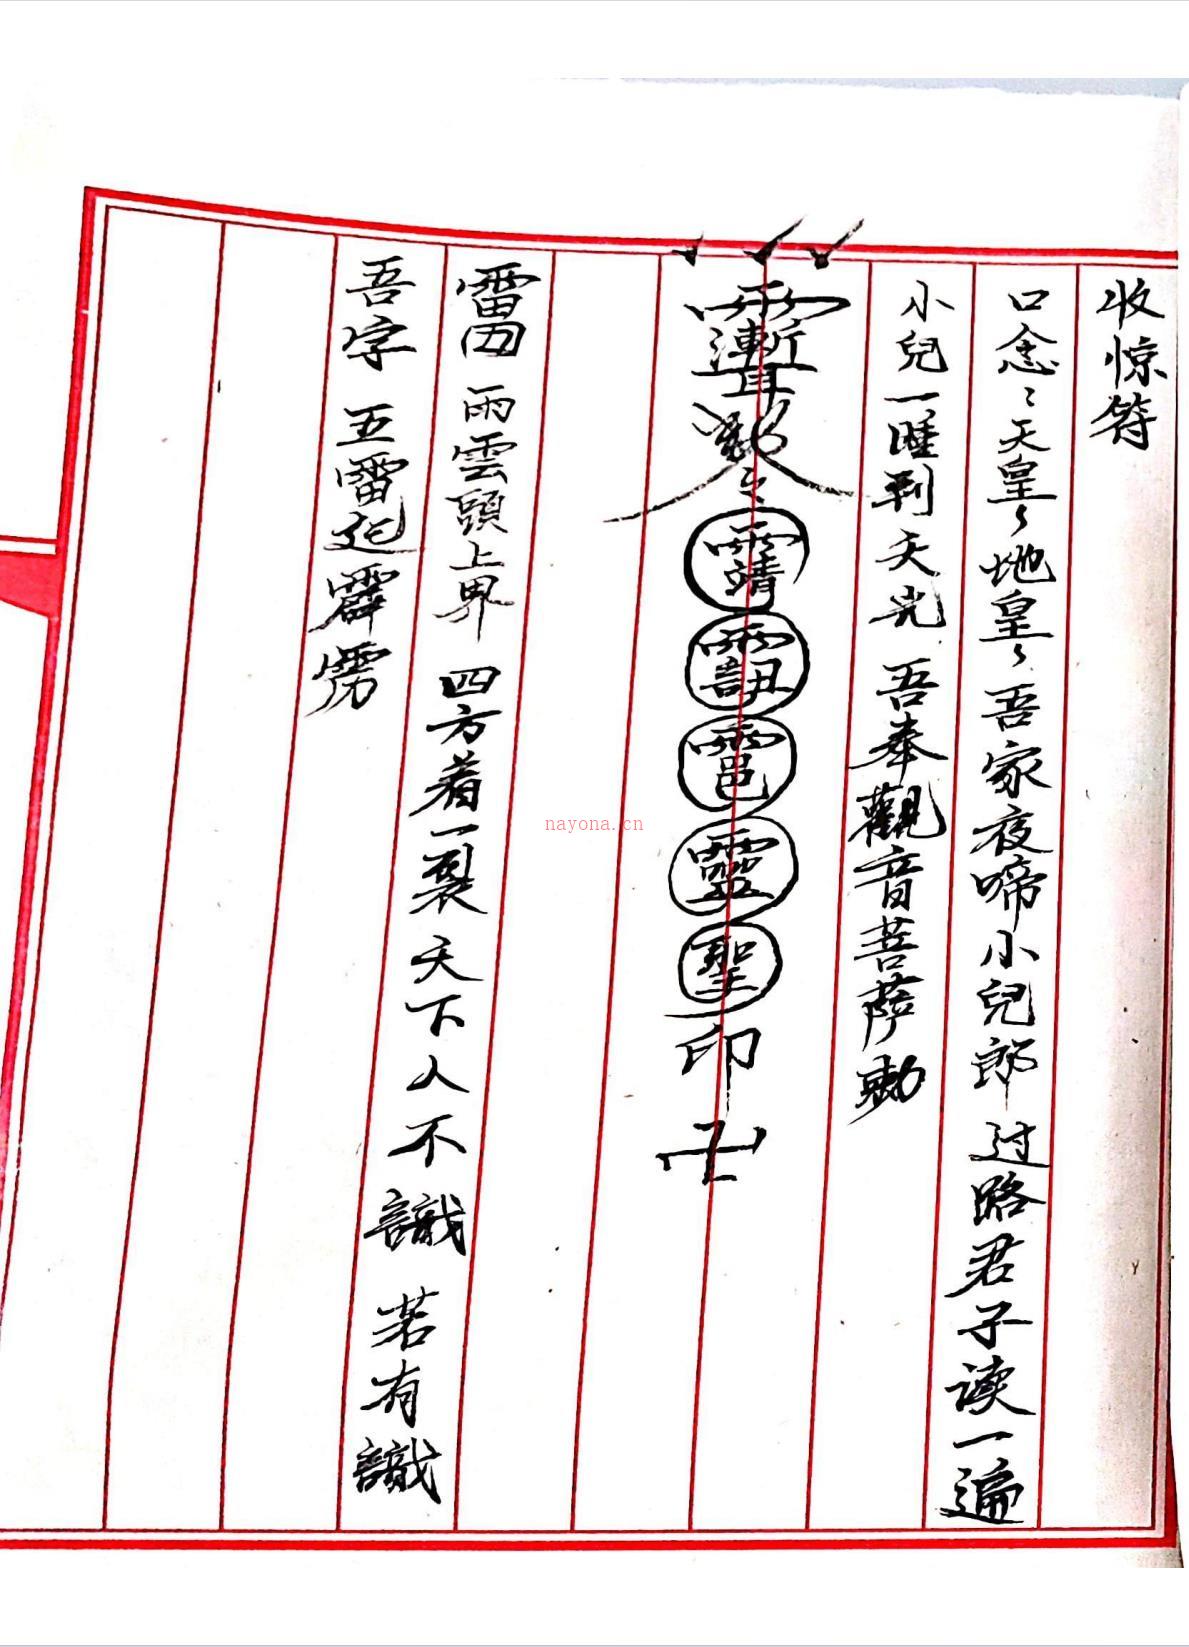 收惊符
口念〻天皇〻地皇〻吾家夜啼小兒郎 过路君子读一遍
小兒一睡到天光 吾奉觀音菩薩勅
靖 邑 靈 聖 印 卍
雨雲頭上界 四方着一裂 天下人不識 若有識
吾字 五雷起霹雳
nayona.cn